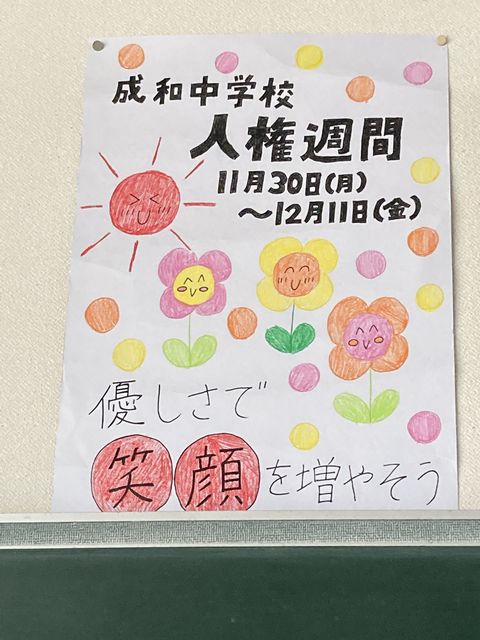 成和中学校
人権週間
11月30日(月)
〜12月11日(金)
優しさで
笑顔を増やそう